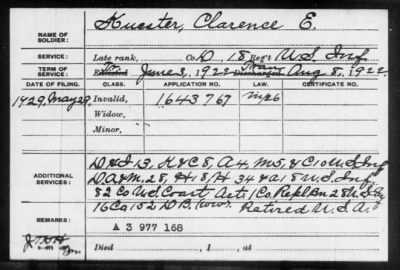 NAME OF SOLDIER: Kuester, Clarence E.
SERVICE: Late rank, Co. D, 18 Reg't U.S. Inf
TERM OF SERVICE: Enlisted June 3, 1922 Discharged Aug. 8, 1922
DATE OF FILING. CLASS. APPLICATION NO. LAW. CERTIFICATE NO.
1929. May 29 Invalid, 1643767
Widow,
Minor,
ADDITIONAL SERVICES: D & I 13, K & C 8, A 4, M 5, & C 10 U.S. Inf
28, H 18, H 34 & A 18 U.S. Inf
82 Co U.S. Coast Arty 1 Co. Repl Bn 28
16 Co 152 D.B. (WW). Retired U.S.A.
REMARKS: A 3 977 168
Died , 1 , at